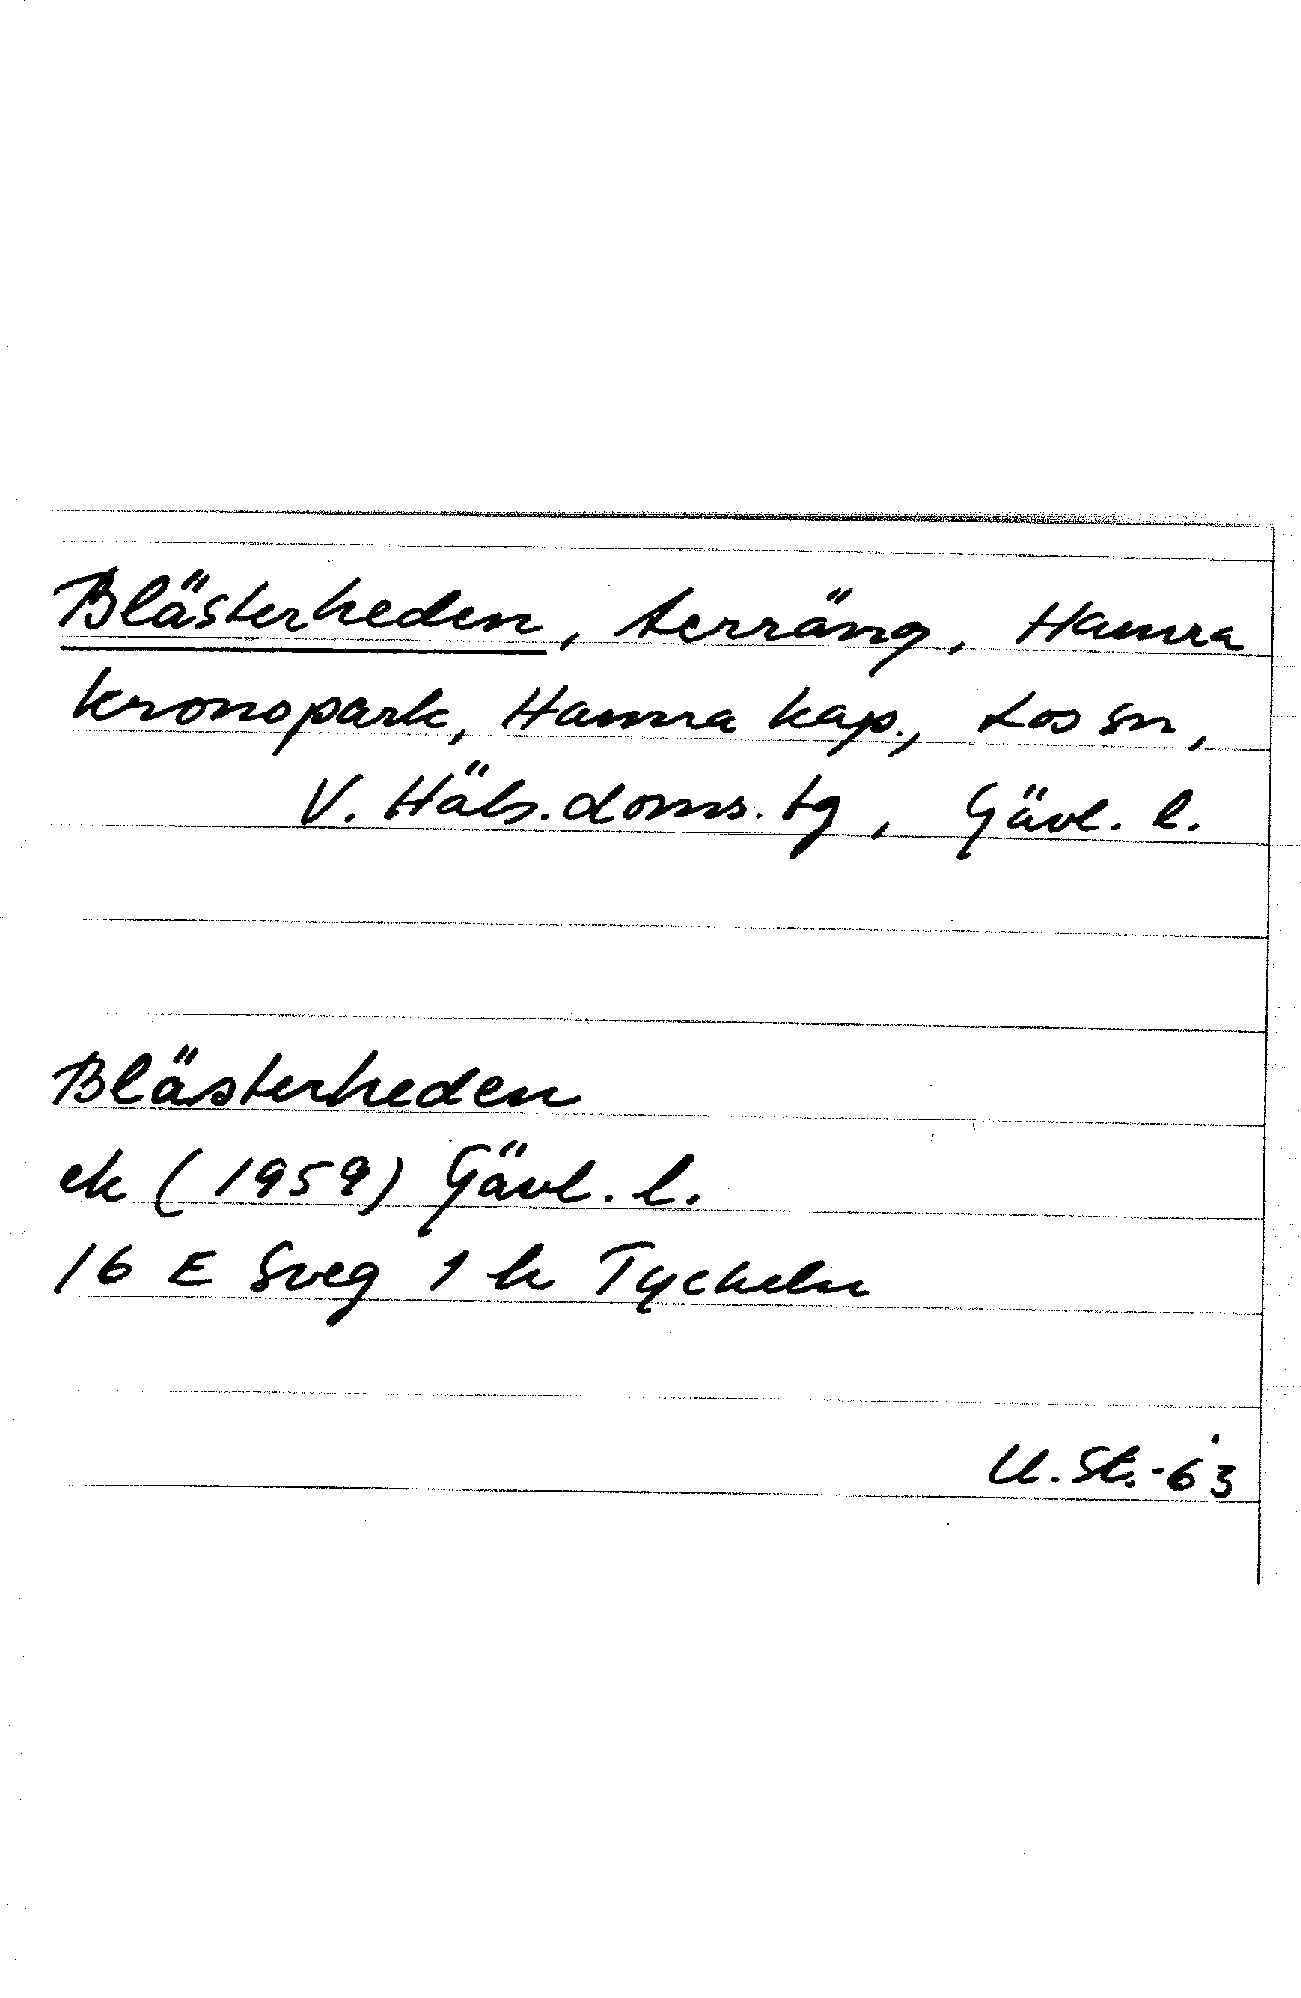 Blästerheden, terräng, Hamra
kronopark, Hamra kap., Los sn,
V. Häls. doms. tg, Gävl. l.
Blästerheden
ek (1959) Gävl. l.
16 E Sveg 1 h Tyckeln
U. St. -63